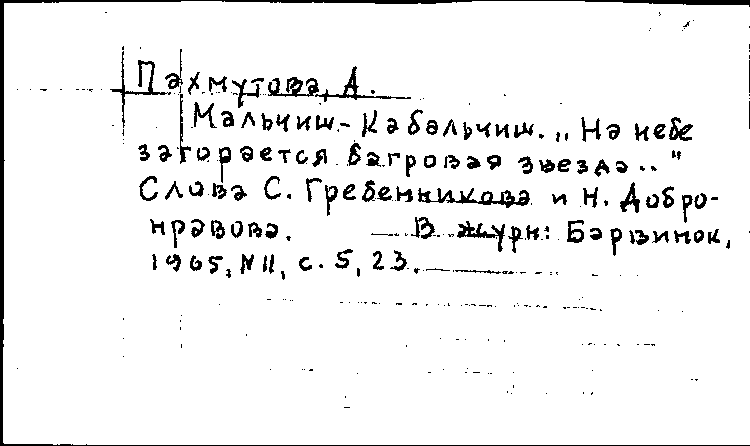 Пахмутова, А.
Мальчиш-Кабальчиш. „На небе
загорается багровая звезда.."
Слова С. Гребенникова и Н. Добро-
нравова. В журн: Барвинок,
1965, N11, с. 5, 23.